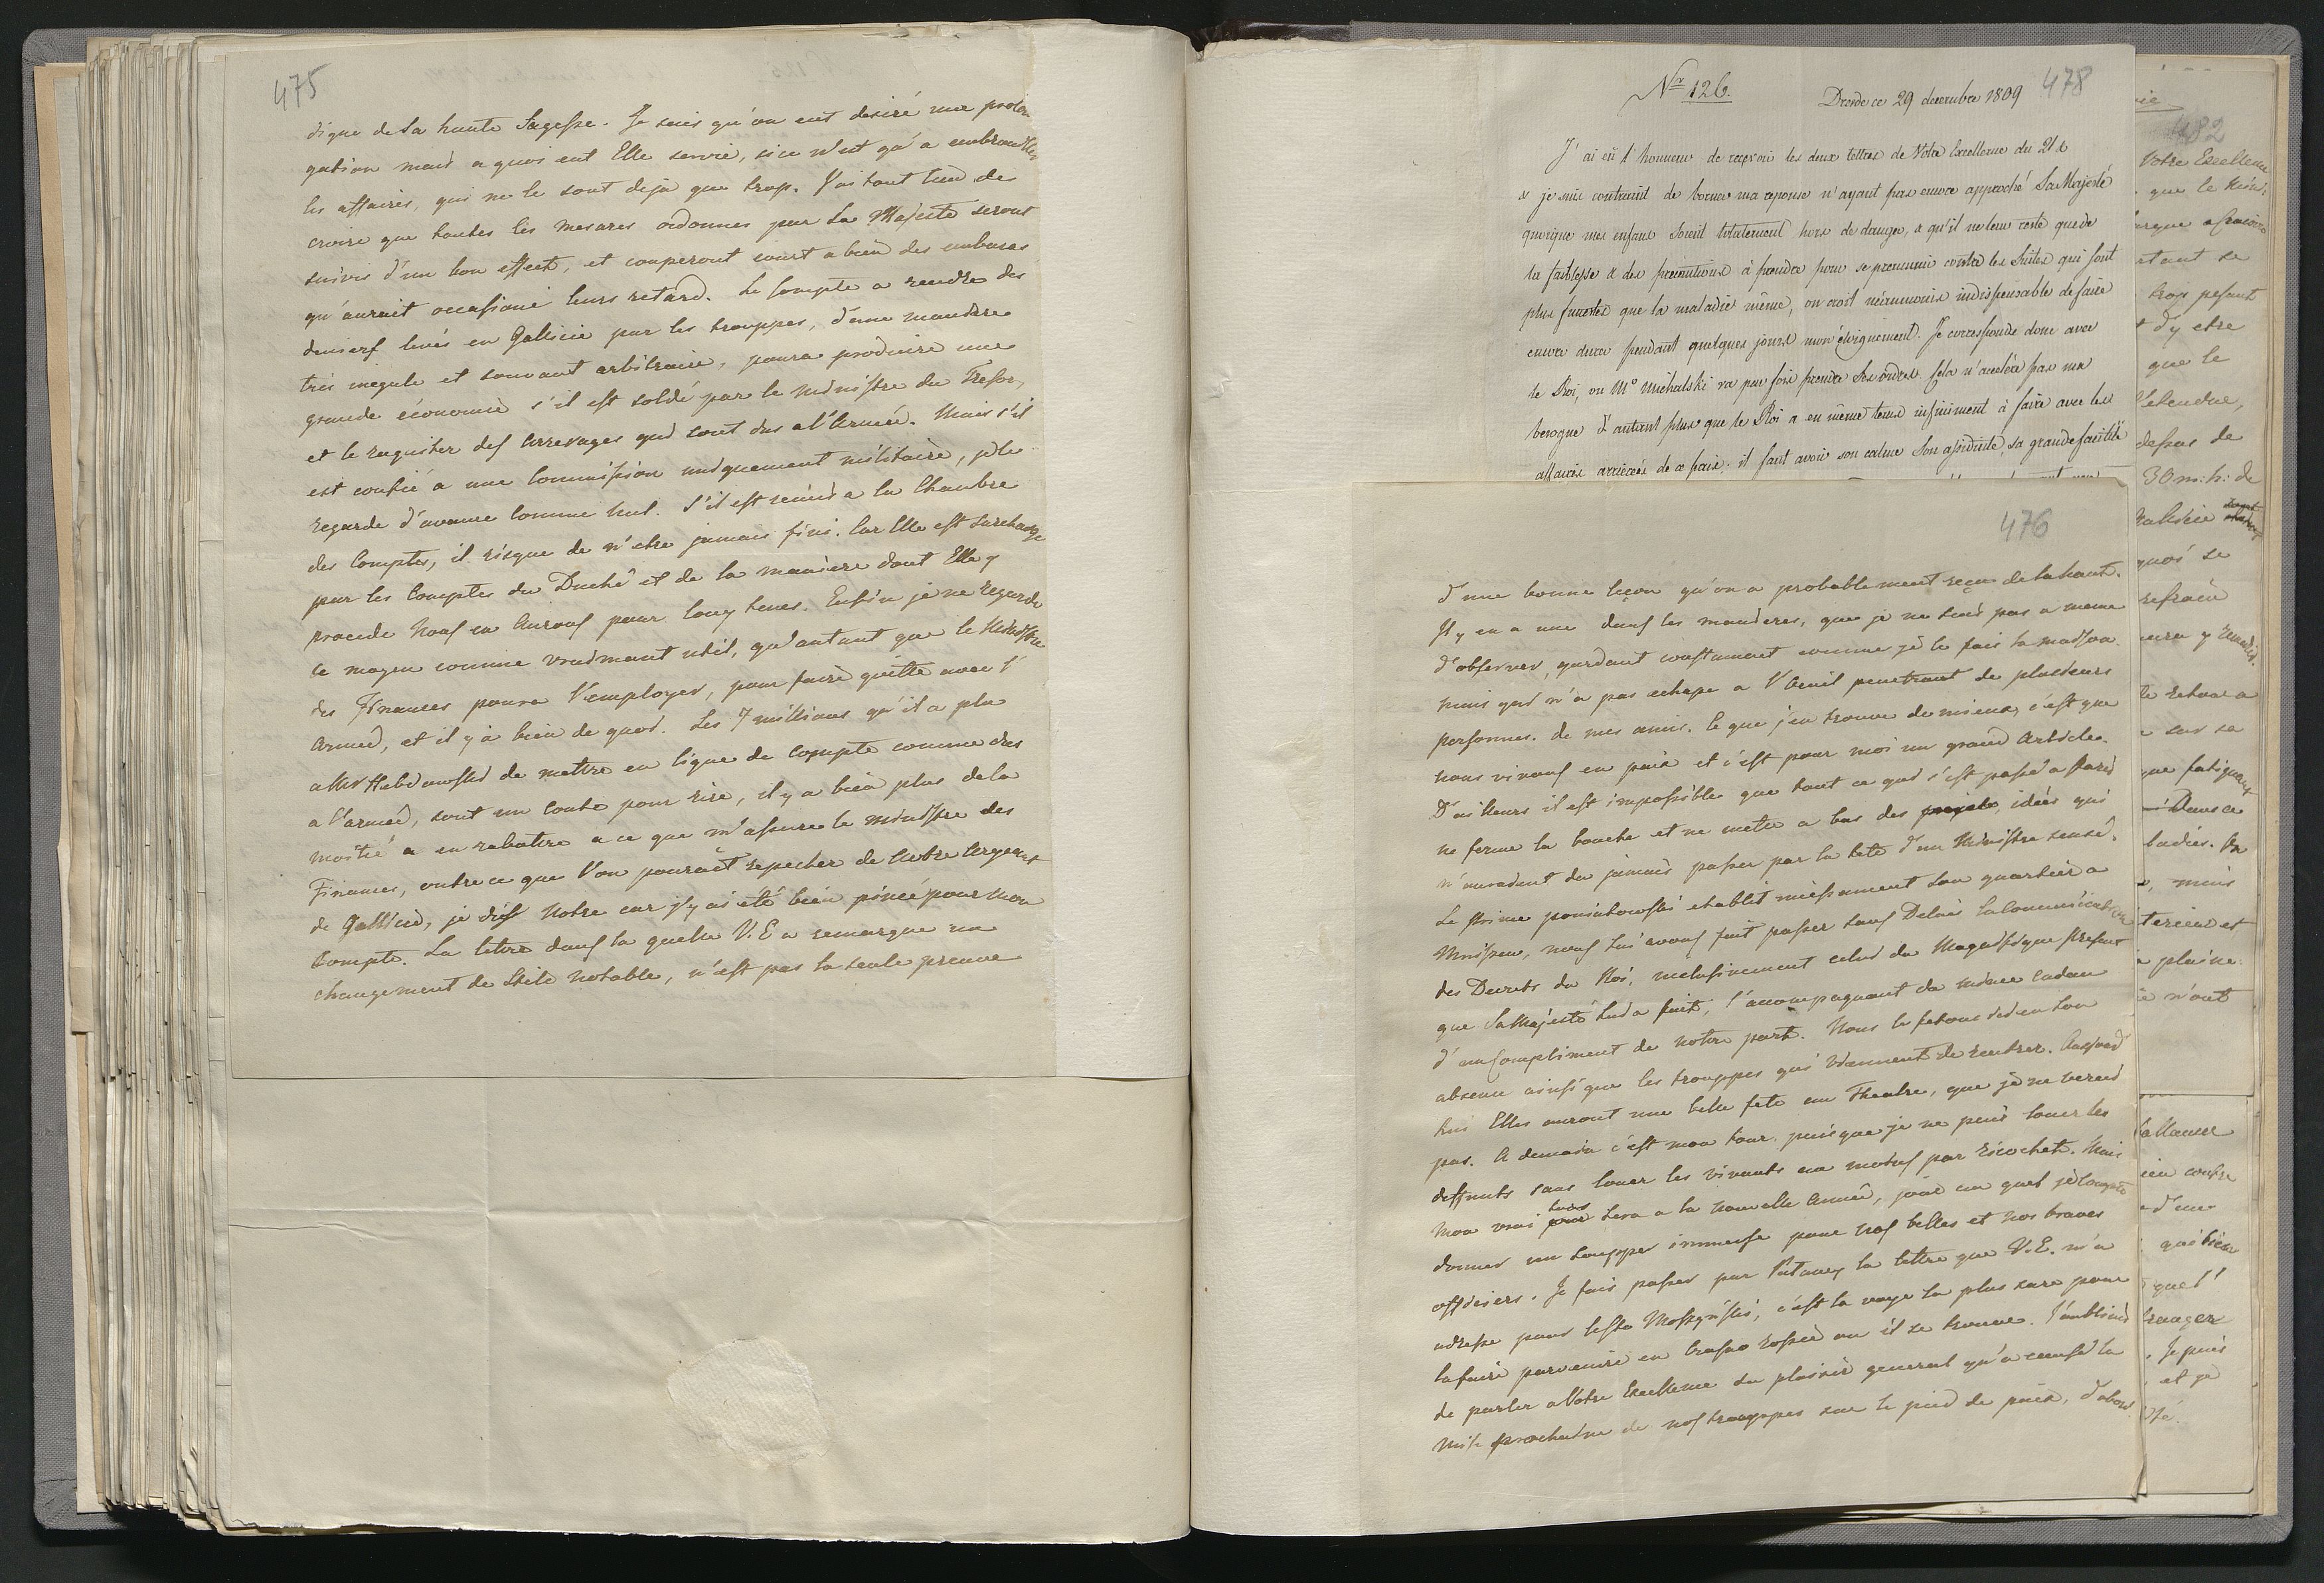 475
digne de Sa haute Sagesse. Je sais qu'on eut desiré une prolon
gation mais a quoi eut Elle servie, si ce n'est qu'a embrouiller
les affaires, qui ne le sont deja que trop. J'ai tout lieu de
croire que toutes les mesures ordonnes par Sa Majesté seront
suivis d'un bon effect, et couperont court a bien des embaras
qu'aurait occasioné leurs retard. Le Compte a rendre des
deniers levés en Gallicie par les trouppes, d'une maniere
très inegale et souvant arbitraire, poura produire une
grande économie s'il est soldé par le Ministre du Tresor,
et le registre des arrerages qui sont dus a l'Armée. Mais s'il
est confié a une Commission uniquement militaire, je le
regarde d'avance comme nul. S'il est remis a la Chambre
des Comptes, il risque de n'etre jamais fini. Car Elle est surchargé
par les Comptes du Duché et de la maniere dont Elle y
procede Nous en aurons pour long tems. Enfin je ne regarde
ce moyen comme vraimant utile, qu'autant que le Ministre
des Finances poura l'employer, pour faire quitte avec l'
Armée, et il y a bien de quoi. Les 7 millions qu'il a plu
a Mr Hebdowski de mettre en ligne de Compte comme dus
a l'armée, sont un Conte pour rire, il y a bien plus de la
moitié a en rabattre a ce que m'assure le ministre des
Finances, outre ce que l'on pourait repecher de Notre Argent
de Gallicie, je dis Notre car j'y ai eté bien pincé pour mon
Compte. La lettre dans la quelle V. E a remarque un
changement de Stile notable, n'est pas la seule preuve
Nr 126.
Dresde ce 29 decembre 1809
478
J'ai eû l'honneur de recevoir les deux lettres de Votre Excellence du 21 &
& je suis contraint de borner ma reponse n'ayant pas encore approché Sa Majesté
quoique mes enfans soient totalement hors de danger, & qu'il ne leur reste que de
la faiblesse & des precautions à prendre pour se premunir contre les suites qui sont
plus funestes que la maladie même, on croit néanmoins indispensable de faire
encore durer pendant quelques jours mon éloignement. Je corresponds donc avec
le Roi, ou Mr Michalski va par fois prendre Ses ordres. Cela n'accelère pas ma
besogne d'autant plus que le Roi a en même tems infiniment à faire avec les
affaires arriérées de ce pais. il faut avoir son calme Son assiduité, sa grande facilité
476
d'une bonne leçon qu'on a probablement reçu de la haut.
Il y en a une dans les manieres, que je ne suis pas a meme
d'observer, gardant constament comme je le fais la maison
mais qui n'a pas echapé a l'Oeuil penetrant de plusieurs
personnes. de mes amis. Ce que j'en trouve de mieux, c'est que
nous vivons en paix et c'est pour moi un grand Article.
D'ailleurs il est impossible que tout ce qui s'est passé a Paris
ne ferme la bouche et ne mette a bas des idées qui
n'auraient du jamais passer par la tete d'un Ministre sensé.
Le Prince Poniatowski etablit incessamment Son quartier a
, nous Lui avons fait passer Sans Delais la Communication
des Decrets du Roi, celui du Magnifique Present
que Sa Majesté Lui a fait, l'accompagnant
d'un Compliment de notre part. Nous le fetons ici en Son
absence ainsi que les trouppes qui viennent de rentrer. Aujourd
hui Elles auront une belle fete au Theatre, que je ne verrai
pas. A demain c'est mon tour, puisque je ne puis louer les
deffunts sans louer les vivants au moins par ricochet. Mais
mon vrai sera a la nouvelle Année, jour au quel je compte
donner un Soupper immense pour nos belles et nos braves
officiers. Je fais passer par Pulawy la lettre que V. E. m'a
adressé pour , c'est la voye la plus sure pour
la faire parvenire en ou il se trouve. J'oubliais
de parler a Votre Excellence du plaisir general qu'a causé la
mise prochaine de nos trouppes sur le pied de paix, d'abord
482
Votre Excellence
que le
etant se
trop pesant
d'y etre
que le
l'etendue,
depas de
30 m: h: de
quoi se
y remedier.
le retour a
sur sa
que fatiguant
Dans ce
mais
et
plaine
n'ont
contre
d'une
qui bien
quel
Je puis
et je